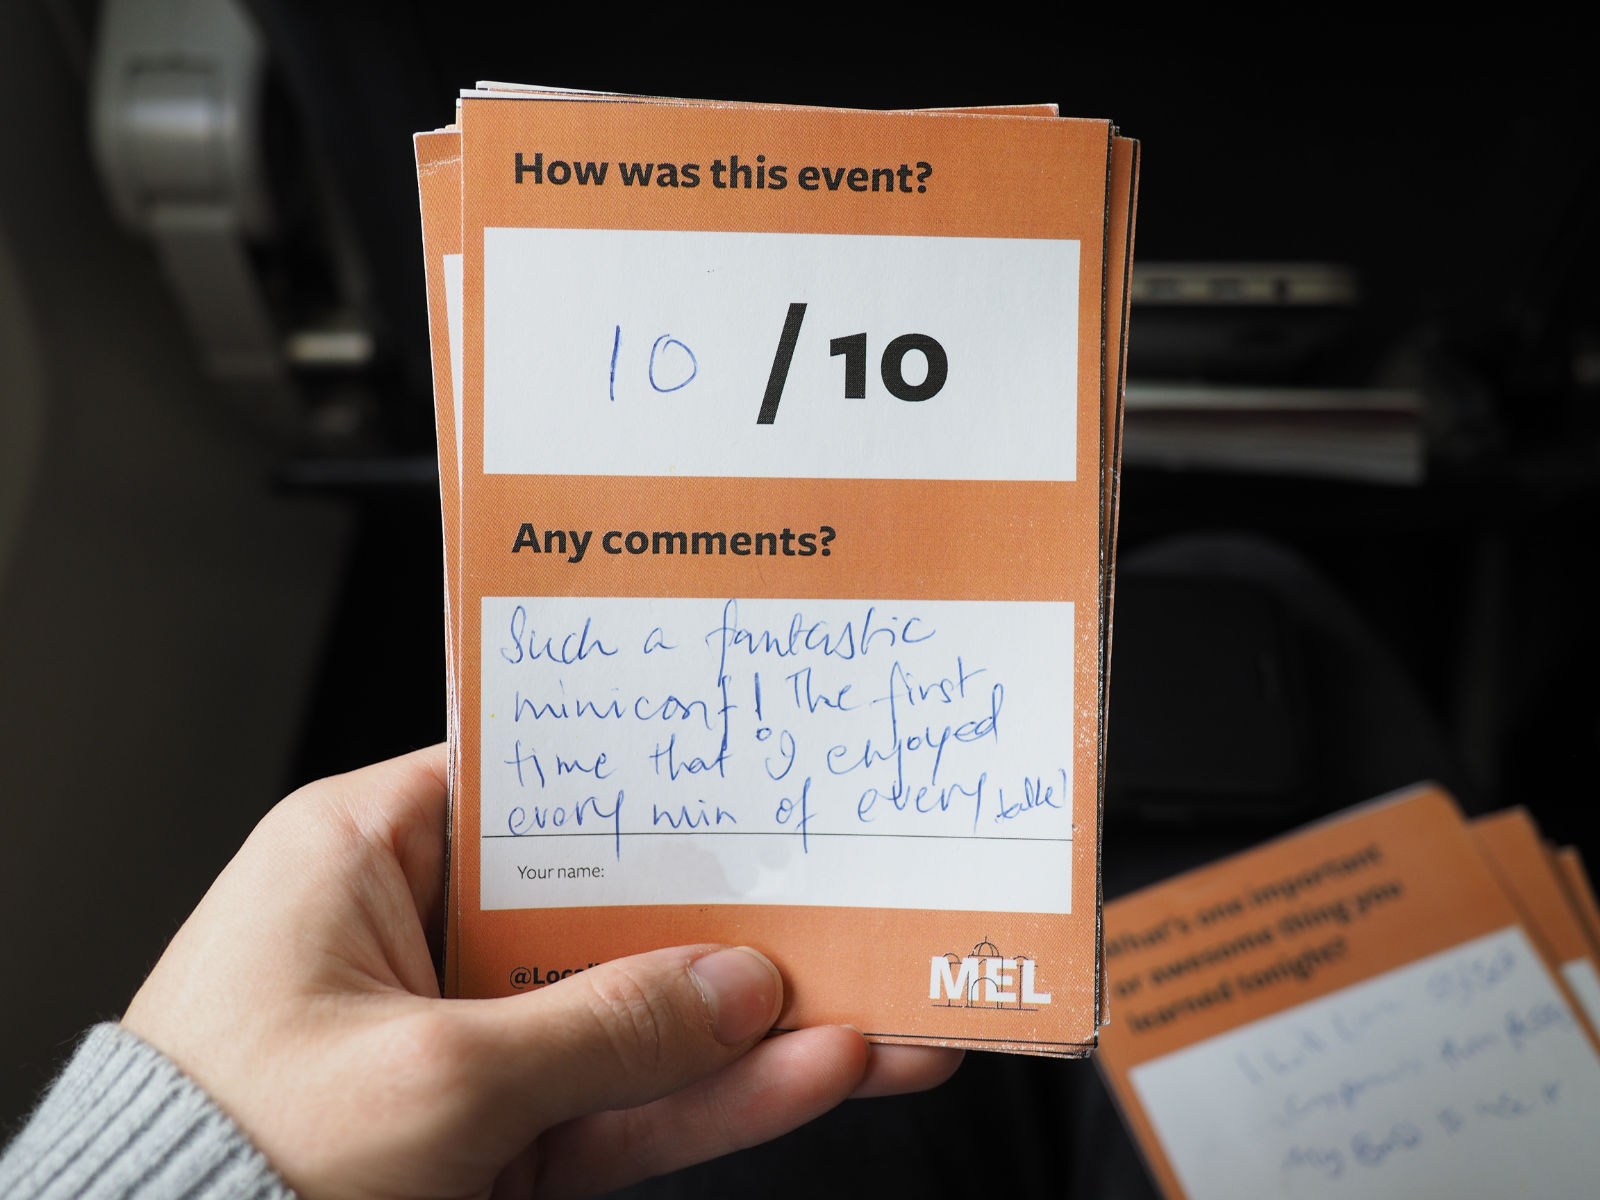 How was this event?
10 / 10
Any comments?
Such a fantastic
miniconf! The first
time that I enjoyed
every min of every talk!
Your name:
MEL
What's one important
or awesome thing you
learned tonight?